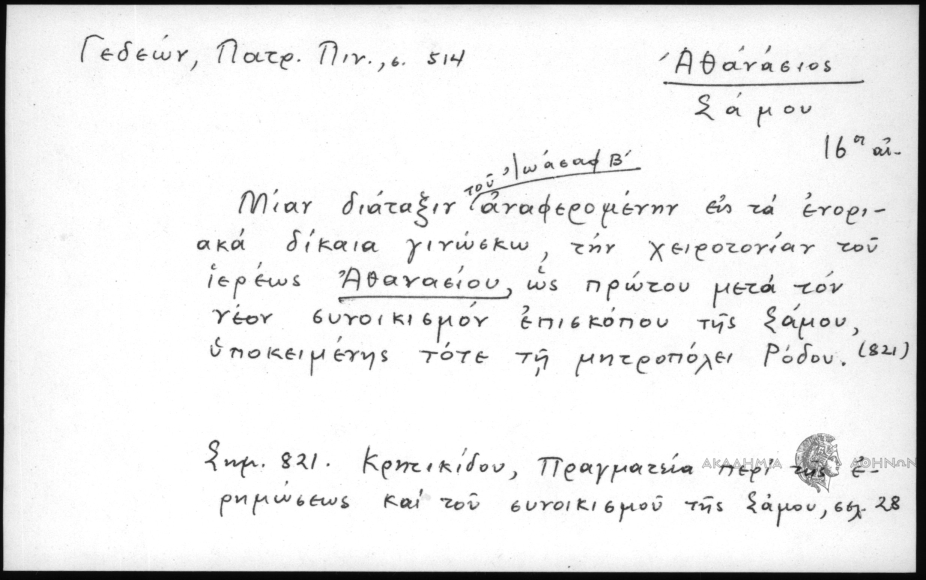 Γεδεών, Πατρ. Πιν., σ. 514
Ἀθανάσιος
Σάμου
16ος αἰ.
τοῦ Ἰωάσαφ Β'
Μίαν διάταξιν ἀναφερομένην εἰς τά ἐνορι-
ακά δίκαια γινώσκω, τήν χειροτονίαν τοῦ
ἱερέως Ἀθανασίου, ὡς πρώτου μετά τόν
νέον συνοικισμόν ἐπισκόπου τῆς Σάμου,
ὑποκειμένης τότε τῇ μητροπόλει Ρόδου. (821)
Σημ. 821. Κρητικίδου, Πραγματεία περί τῆς ἐ-
ρημώσεως καί τοῦ συνοικισμοῦ τῆς Σάμου, σελ. 28
ΑΚΑΔΗΜΙΑ ΑΘΗΝΩΝ